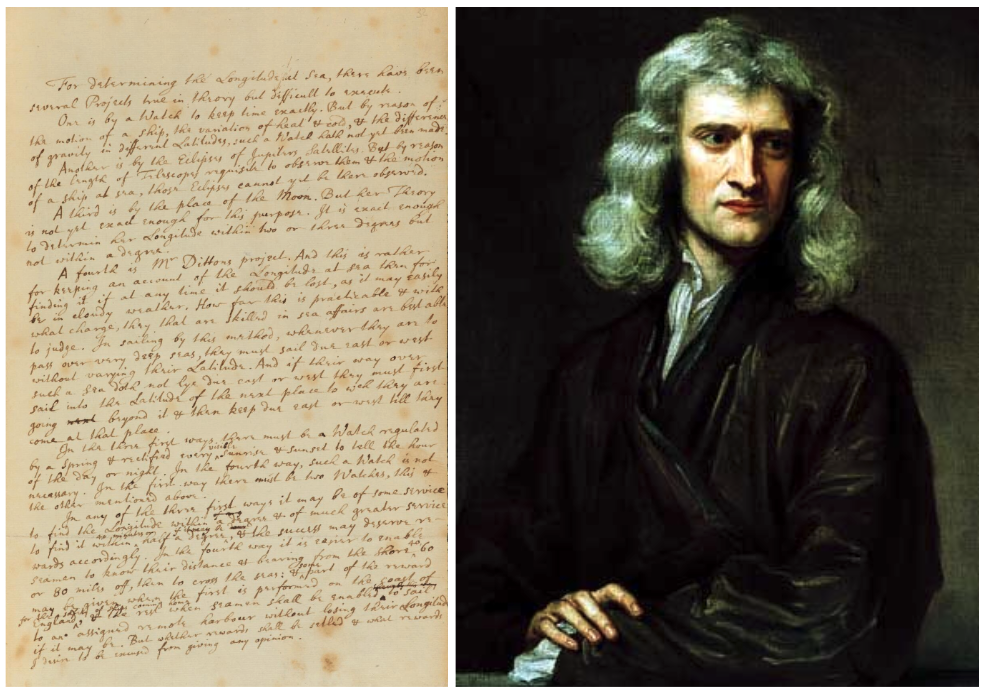 For determining the Longitude at Sea, there have been
several Projects true in theory but difficult to execute.
One is by a Watch to keep time exactly. But by reason of
the motion of a ship, the variation of heat & cold, & the difference
of gravity in different Latitudes, such a Watch hath not yet been made.
Another is by the Eclipses of Jupiters Satellites. But by reason
of the length of Telescopes requisite to observe them & the motion
of a ship at sea, those Eclipses cannot yet be there observed.
A third is by the place of the Moon. But her Theory
is not yet exact enough for this purpose. It is exact enough
to determin her Longitude within two or three degrees but
not within a degree.
A fourth is Mr Dittons project. And this is rather
for keeping an account of the Longitude at sea then for
finding it if at any time it should be lost, as it may easily
be in cloudy weather. How far this is practicable & with
what charge, they that are skilled in sea affairs are best able
to judge. In sailing by this method, whenever they are to
pass over very deep seas, they must sail due east or west
without varying their Latitude. And if their way over
such a Sea doth not lye due east or west they must first
sail into the Latitude of the next place to wch they are
going beyond it & then keep due east or west till they
come at that place.
In the three first ways there must be a Watch regulated
by a Spring & rectified every visible sunrise & sunset to tell the hour
of the day or night. In the fourth way, such a Watch is not
necessary. In the first way there must be two Watches, this &
the other mentioned above.
In any of the three first ways it may be of some service
to find the Longitude within a degree & of much greater service
to find it within half a degree & the success may deserve re-
wards accordingly. In the fourth way it is easier to enable
seamen to know their distance & bearing from the shore 40, 60
or 80 miles off, then to cross the seas: & some part of the reward
may be given when the first is performed on the coast of
England & the rest when seamen shall be enabled to sail
to an assigned remote harbour without losing their Longitude
if it may be. But whether rewards shall be setled & what rewards
I desire to be excused from giving any opinion.